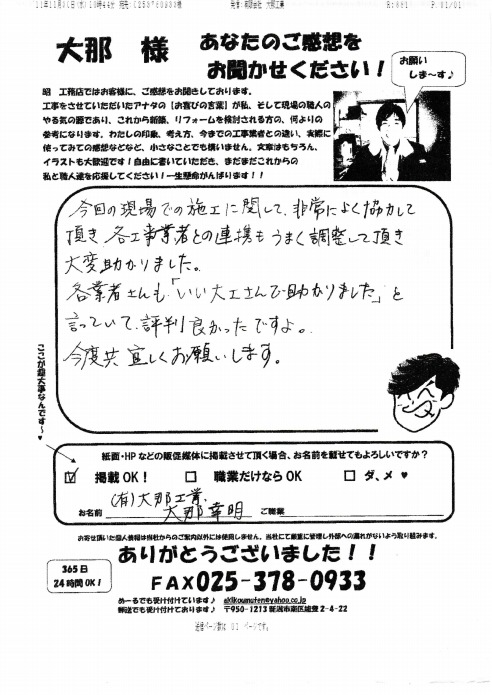 11年11月30日(水)10時44分 宛先:0253780933様 発信:有限会社 大那工業 R:681 P.01/01
大那 様
あなたのご感想を
お聞かせください！
お願い
しま〜す♪
昭 工務店ではお客様に、ご感想をお聞きしております。
工事をさせていただいたアナタの【お喜びの言葉】が私、そして現場の職人の
やる気の源であり、これから新築、リフォームを検討される方の、何よりの
参考になります。わたしの印象、考え方、今までの工事業者との違い、実際に
使っておての感想などなど、小さなことでも構いません。文章はもちろん、
イラストも大歓迎です！自由に書いていただき、まだまだこれからの
私と職人達を応援してください！一生懸命がんばります！！
今回の現場での施工に関して、非常によく協力して
頂き、各工事業者との連携もうまく調整して頂き
大変助かりました。
各業者さんも「いい大工さんで助かりました」と
言っていて、評判良かったですよ。
今度共宜しくお願いします。
ここが超大事なんです〜♥
紙面・HPなどの販促媒体に掲載させて頂く場合、お名前を載せてもよろしいですか？
☑ 掲載OK！ □ 職業だけならOK □ ダ、メ ♥
(有)大那工業
お名前 大那幸明 ご職業
お寄せ頂いた個人情報は当社からのご案内以外には使用しません。当社にて厳重に管理し外部への漏れがないよう取り組みます。
ありがとうございました！！
365日
24時間OK！
FAX025-378-0933
めーるでも受け付けています♪ akikoumuten@yahoo.co.jp
郵送でも受け付けております♪ 〒950-1213 新潟市南区能登2-4-22
送信ページ数は 01 ページです。